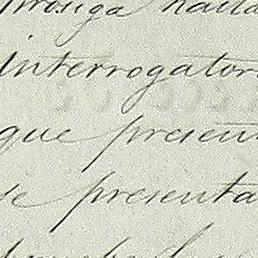 prosiga hasta
interrogatori
que presen
se presenta